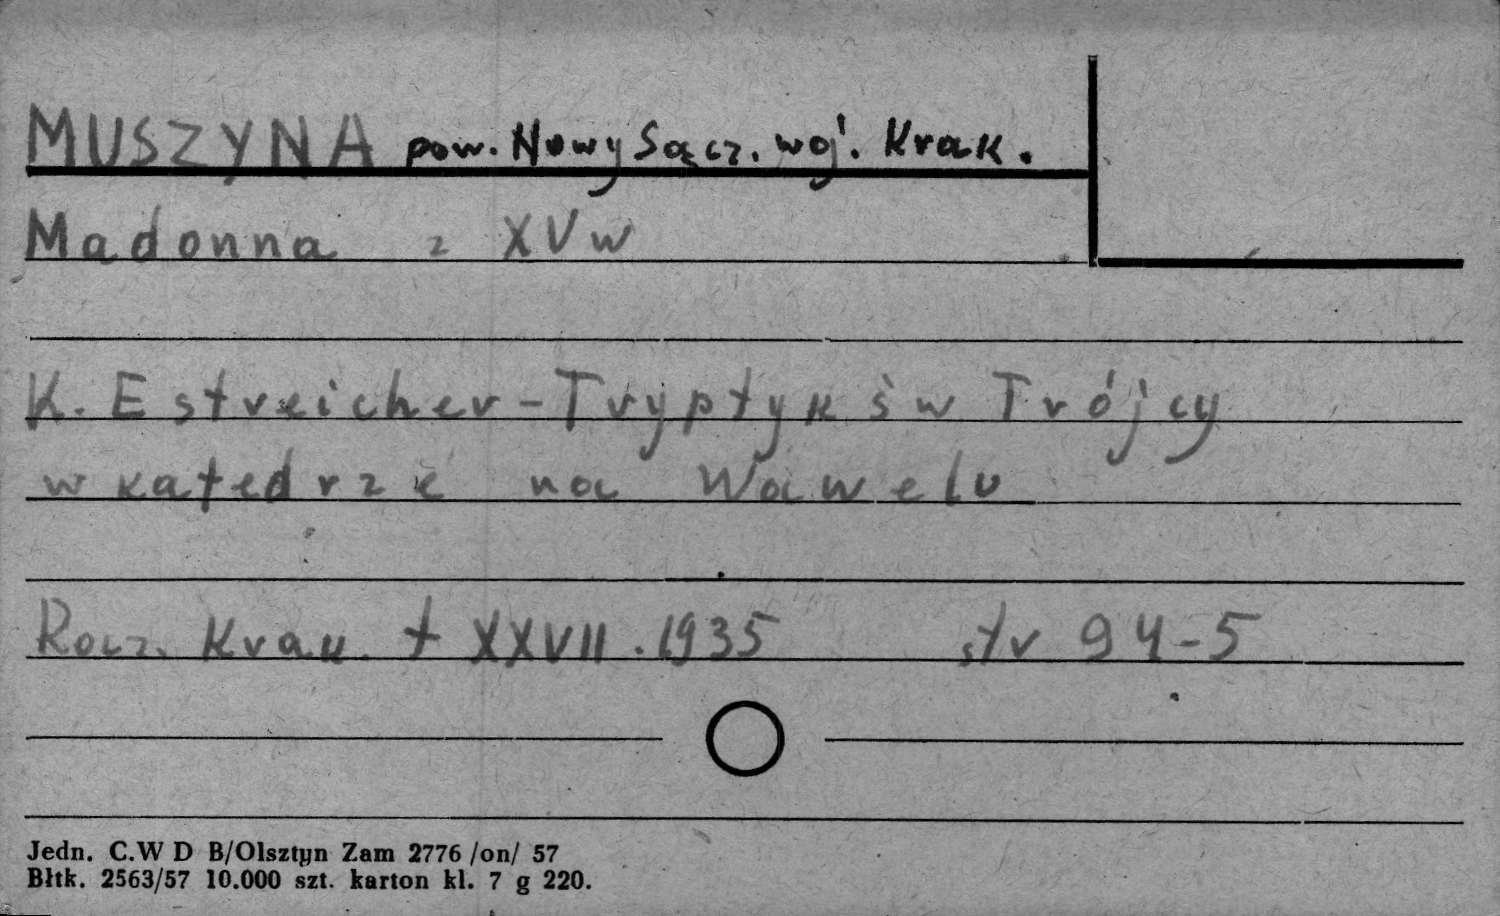 MUSZYNA pow. Nowy Sącz. woj. Krak.
Madonna z XV w
K. Estreicher - Tryptyk św Trójcy
w katedrze na Wawelu
Rocz. Krak. t XXVII. 1935 str 94-5
Jedn. C.W D B/Olsztyn Zam 2776 /on/ 57
Błtk. 2563/57 10.000 szt. karton kl. 7 g 220.